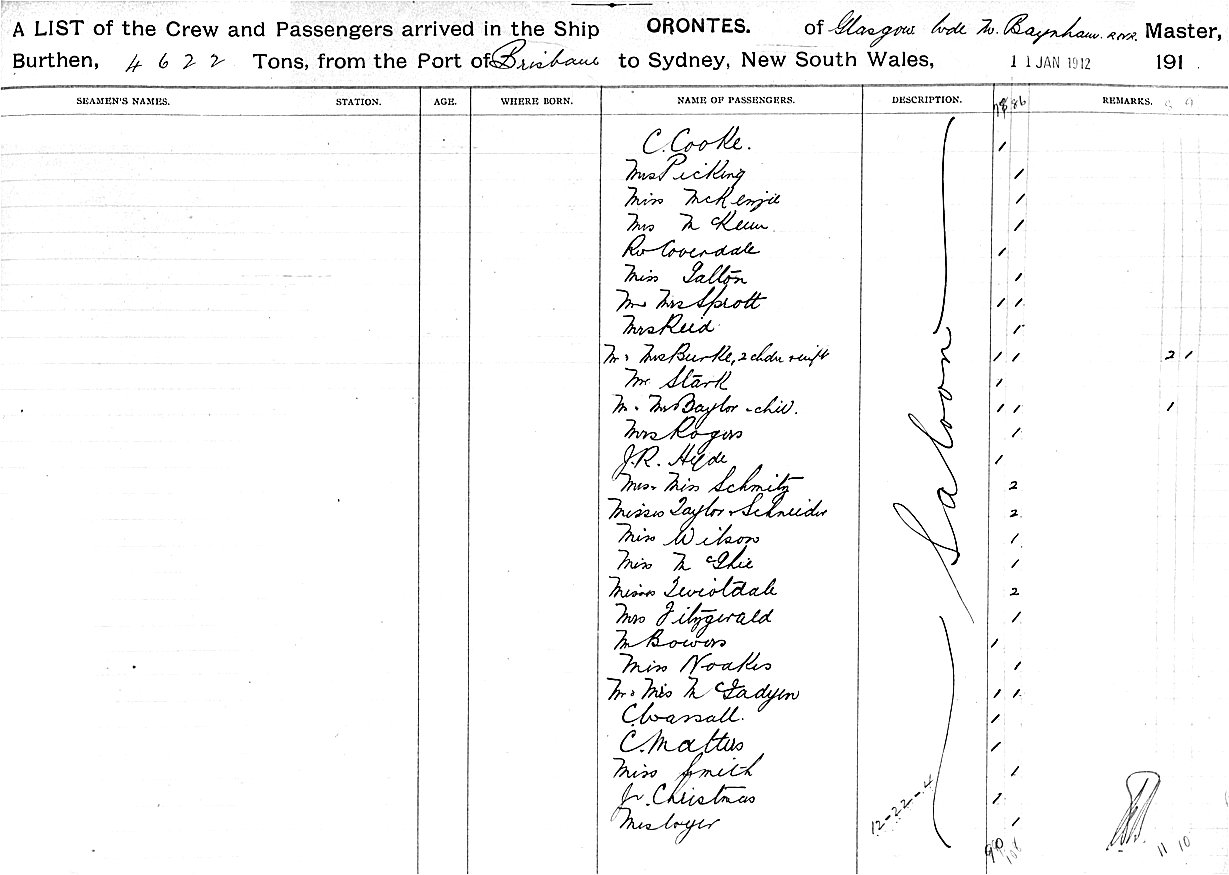 A LIST of the Crew and Passengers arrived in the Ship ORONTES. of Glasgow Code M. Baynham. RNR. Master,
Burthen, 4622 Tons, from the Port of Brisbane to Sydney, New South Wales, 11 JAN 1912 191 .
SEAMEN'S NAMES. STATION. AGE. WHERE BORN. NAME OF PASSENGERS. DESCRIPTION. 78 86 REMARKS. 8 9
C. Cooke. 1
Mrs Picking 1
Miss McKenzie 1
Mrs Mc 1
Coverdale 1
Miss Galton 1
Mr Mrs Sprott 1 1
Mrs Reid 1
Mr . Mrs Burke, 2 chdn & inft 1 1 2 1
Mr Stark 1
Mr . Mrs Baylor - chil. 1 1 1
Mrs Rogers 1
J.R. Hyde 1
Mrs . Miss Schmitz 2
Misses Taylor & Schneider 2
Miss Wilson 1
Miss McGhie 1
Misses Teviotdale 2
Mrs Fitzgerald 1
Mr Bowers 1
Miss Noakes 1
Mr . Mrs McFadyen 1 1
C. 1
C. Matters 1
Miss Smith 1
Jr. Christmas 1
Mrs 1
Saloon
12-22-4
90 106 11 10